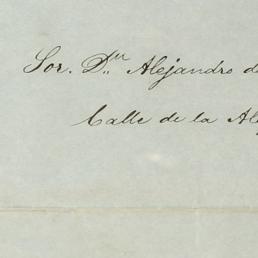 Sor. Dn. Alejandro de
Calle de la